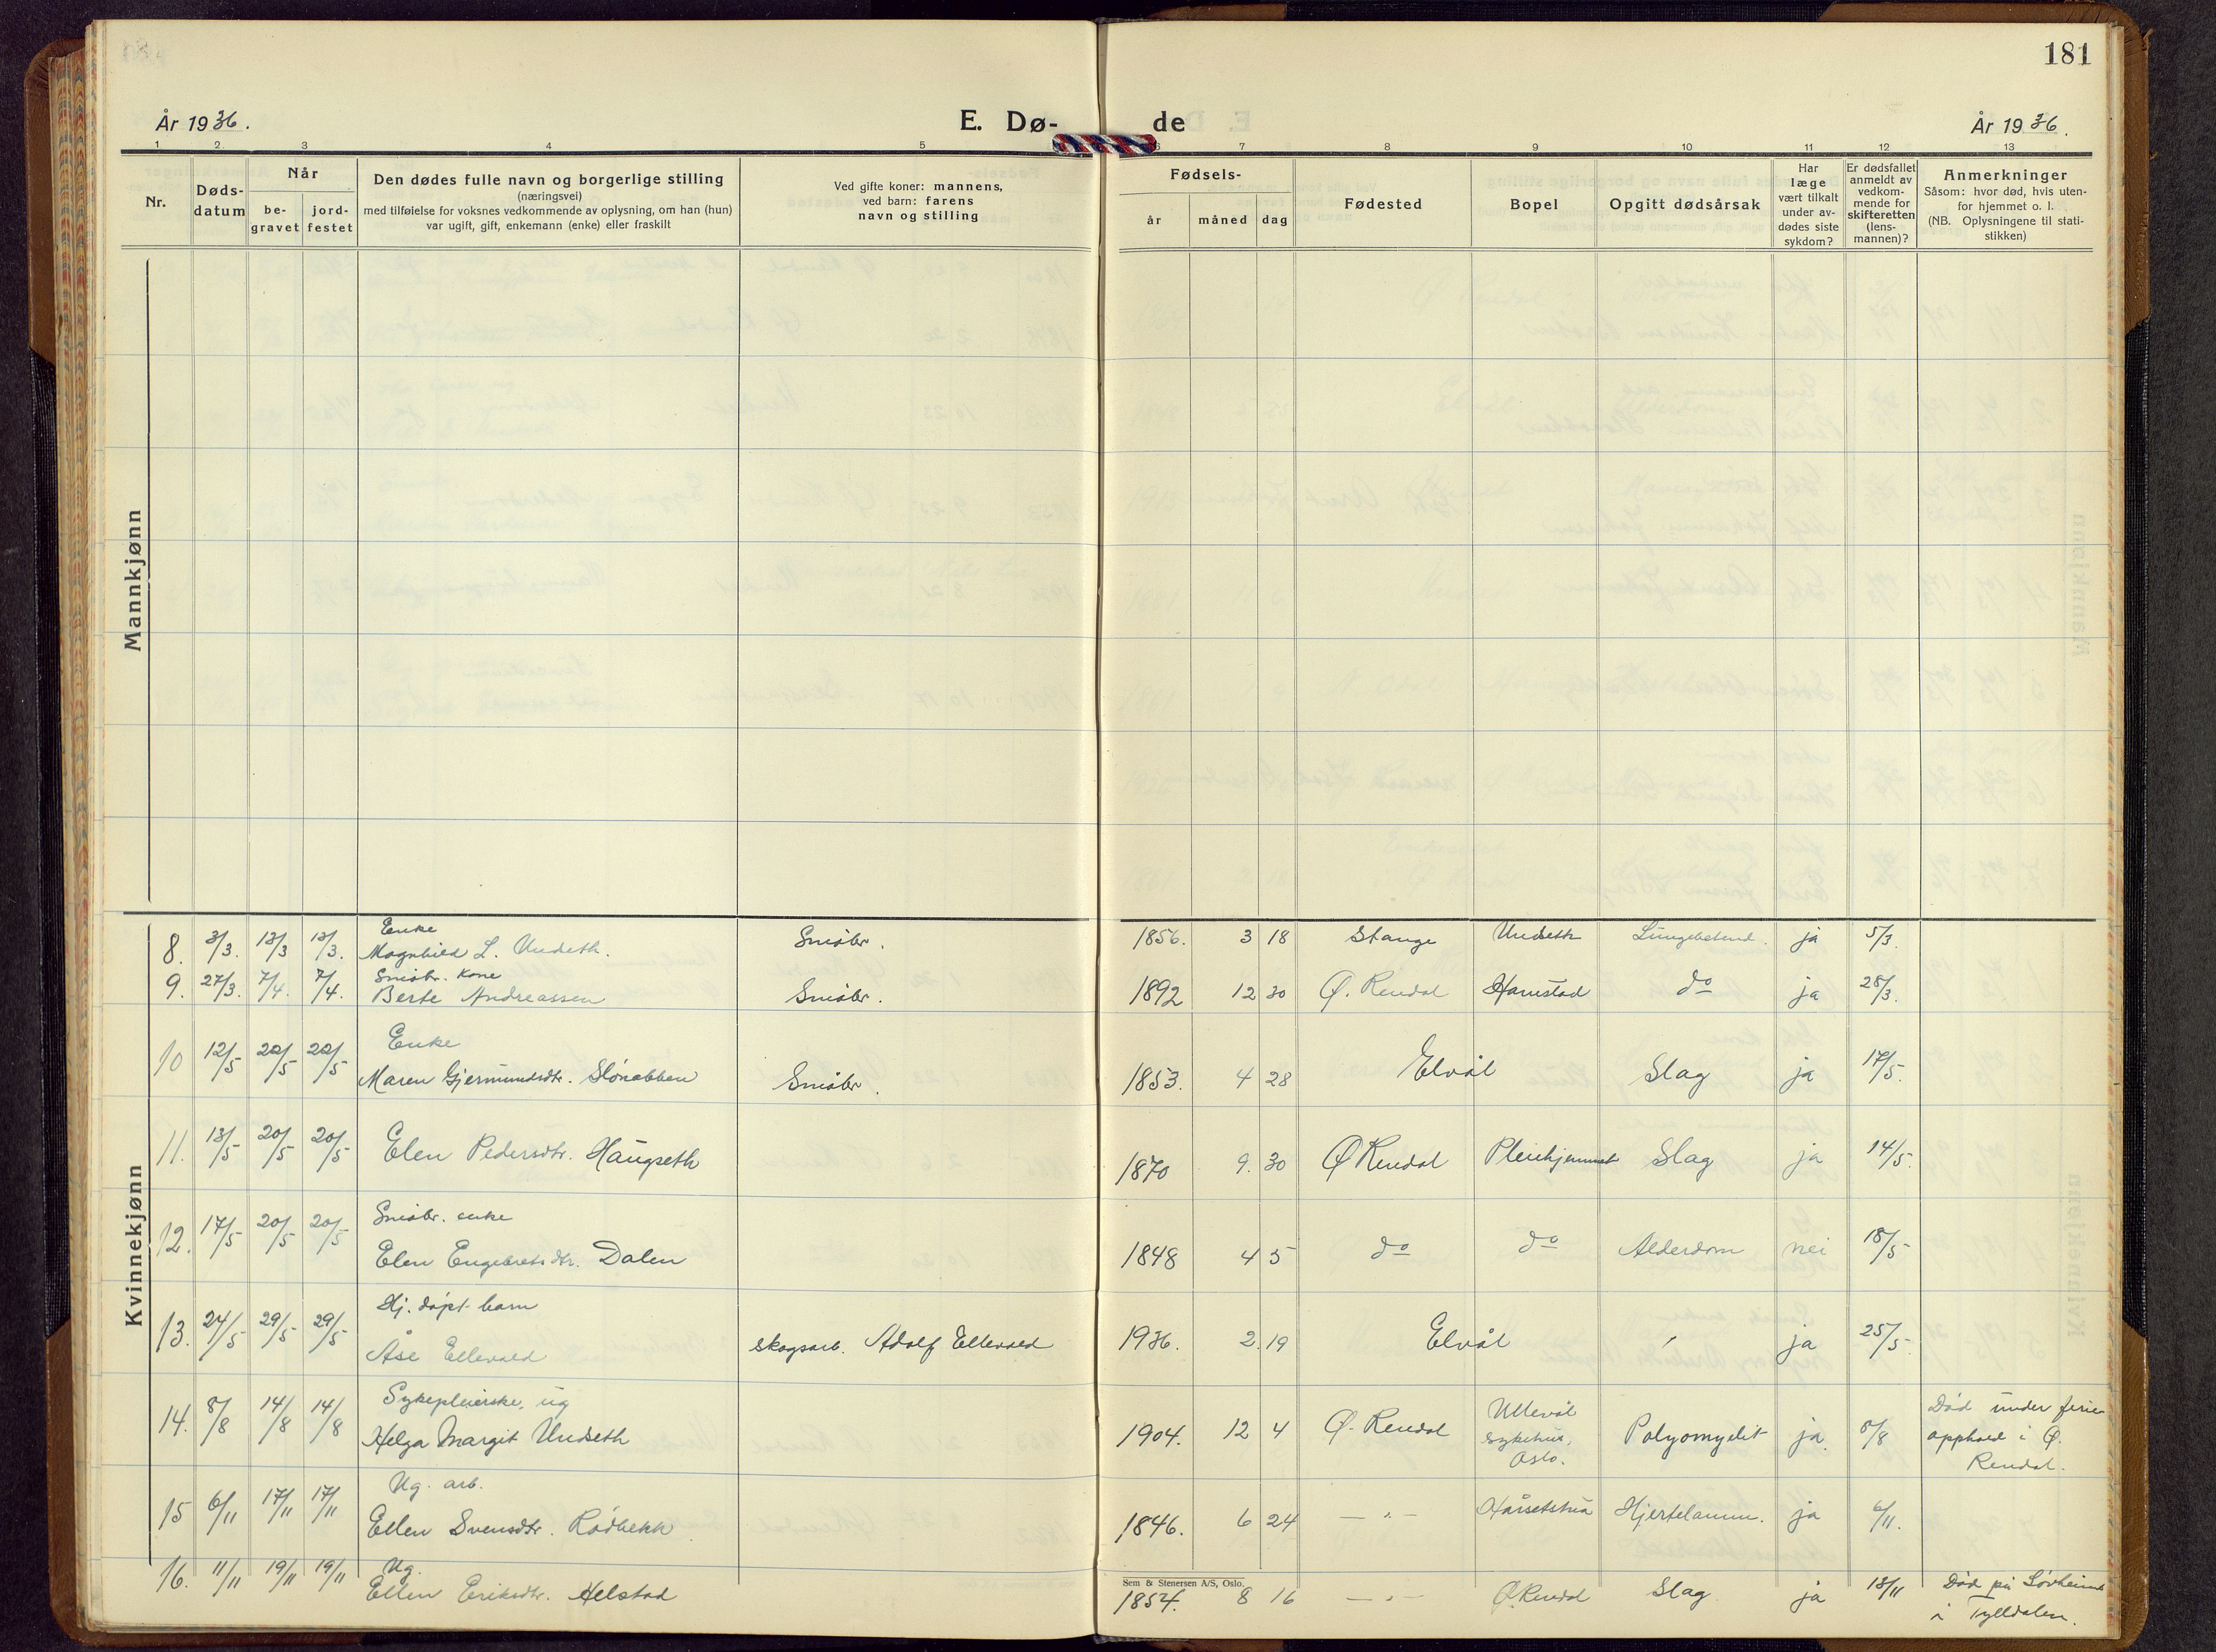 181
År 1936.
E. Dø-
de
År 1936.
1 2 3 4 5 6 7 8 9 10 11 12 13
Nr.
Døds-
datum
Når
be-
gravet
jord-
festet
Den dødes fulle navn og borgerlige stilling
(næringsvei)
med tilføielse for voksnes vedkommende av oplysning, om han (hun)
var ugift, gift, enkemann (enke) eller fraskilt
Ved gifte koner: mannens,
ved barn: farens
navn og stilling
Fødsels-
år
måned
dag
Fødested
Bopel
Opgitt dødsårsak
Har
læge
vært tilkalt
under av-
dødes siste
sykdom?
Er dødsfallet
anmeldt av
vedkom-
mende for
skifteretten
(lens-
mannen)?
Anmerkninger
Såsom: hvor død, hvis uten-
for hjemmet o. l.
(NB. Oplysningene til stati-
stikken)
Mannkjønn
Kvinnekjønn
Enke
8. 3/3. 13/3 13/3. Magnhild L. Undseth. Småbr. 1856. 3 18 Stange Undseth Lungebetend. ja 5/3.
Småbr. kone
9. 27/3. 7/4. 7/4. Berte Andreassen Småbr. 1892 12 30 Ø. Rendal Hanestad do ja 28/3.
Enke
10 12/5 20/5 20/5 Maren Gjermundsdtr. Slónabben Småbr. 1853. 4 28 Elvål Slag ja 17/5.
11. 13/5 20/5 20/5 Elen Pedersdtr. Haugseth 1870 9. 30 Ø Rendal Pleiehjemmet Slag ja 14/5.
Småbr. enke
12. 17/5 20/5 20/5 Elen Engebretsdtr. Dalen 1848 4 5 do do Alderdom nei 18/5
Hj. døpt barn
13. 24/5 29/5 29/5 Åse Ellevold skogsarb. Adolf Ellevold 1936. 2. 19 Elvål ja 25/5
Sykepleierske, ug
14. 8/8 14/8 14/8 Helga Margit Undseth 1904. 12 4 Ø. Rendal Ullevål
sykehus,
Oslo. Polyomyelit ja. 8/8 Død under ferie
opphold i Ø.
Rendal.
Ug. arb.
15 6/11 17/11 17/11 Ellen Svensdtr. Rødbekk 1846. 6 24 — " — Hårsetstua Hjertelamm. ja 6/11.
Ug.
16. 11/11 19/11 19/11 Ellen Eriksdtr. Helstad 1854. 8 16 — " — Ø. Rendal Slag ja 13/11 Død på Sóvheim
i Tylldalen.
Sem & Stenersen A/S, Oslo.